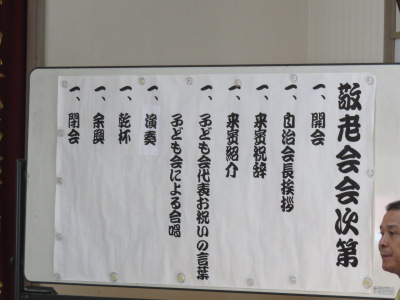 敬老会会次第
一、開会
一、自治会長挨拶
一、来賓祝辞
一、来賓紹介
一、子ども会代表お祝いの言葉
子ども会による合唱
一、演奏
一、乾杯
一、余興
一、閉会